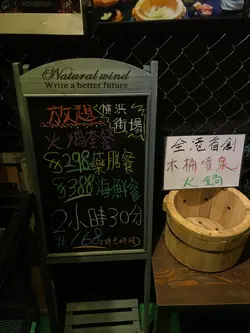 Natural wind
Write a better future
放題
街場
火鍋套餐
$298藥膳餐
$388海鮮餐
2小時30分
全港首創
木桶噴泉
火鍋